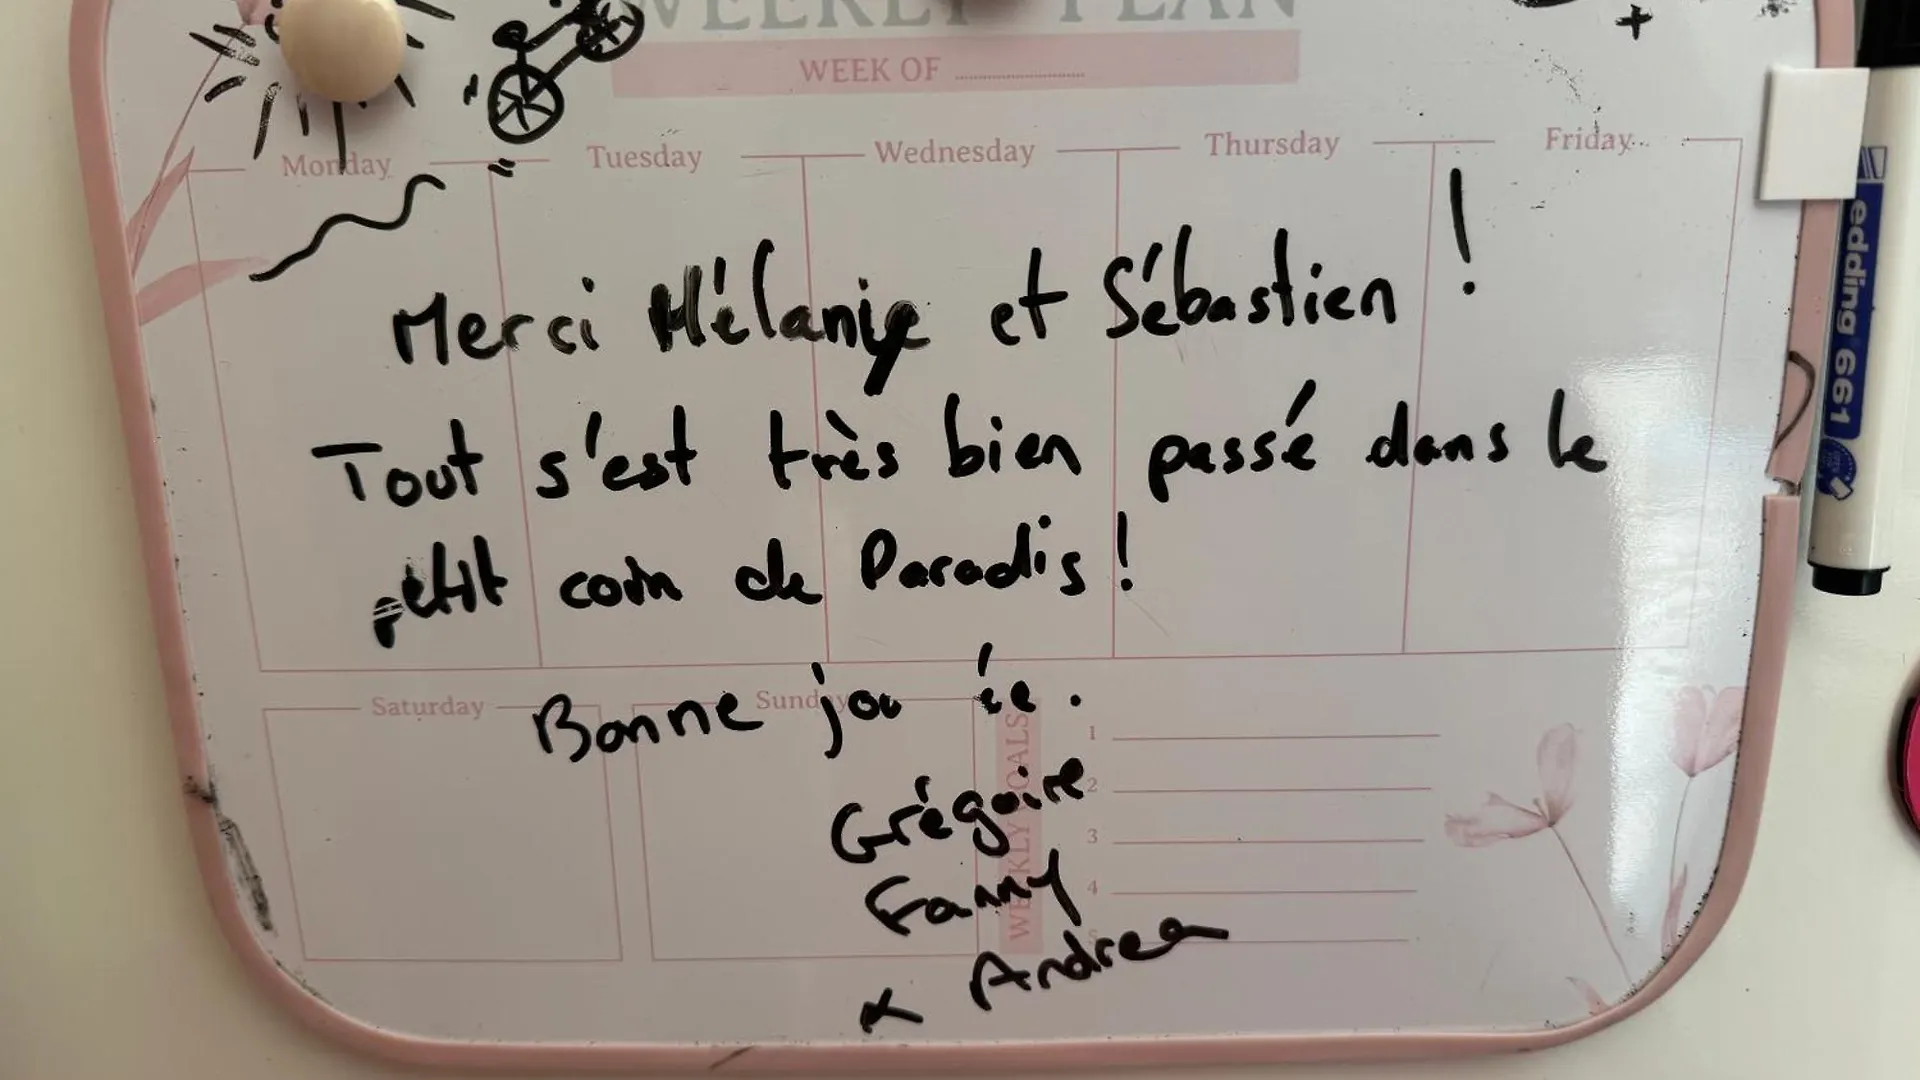 WEEKLY PLAN
WEEK OF
Monday Tuesday Wednesday Thursday Friday
Merci Mélanie et Sébastien !
Tout s'est très bien passé dans le
petit coin de Paradis !
Bonne jou ée.
Saturday Sunday
WEEKLY GOALS
1
2
3
4
5
Grégoire
Fanny
x Andrea
edding 661